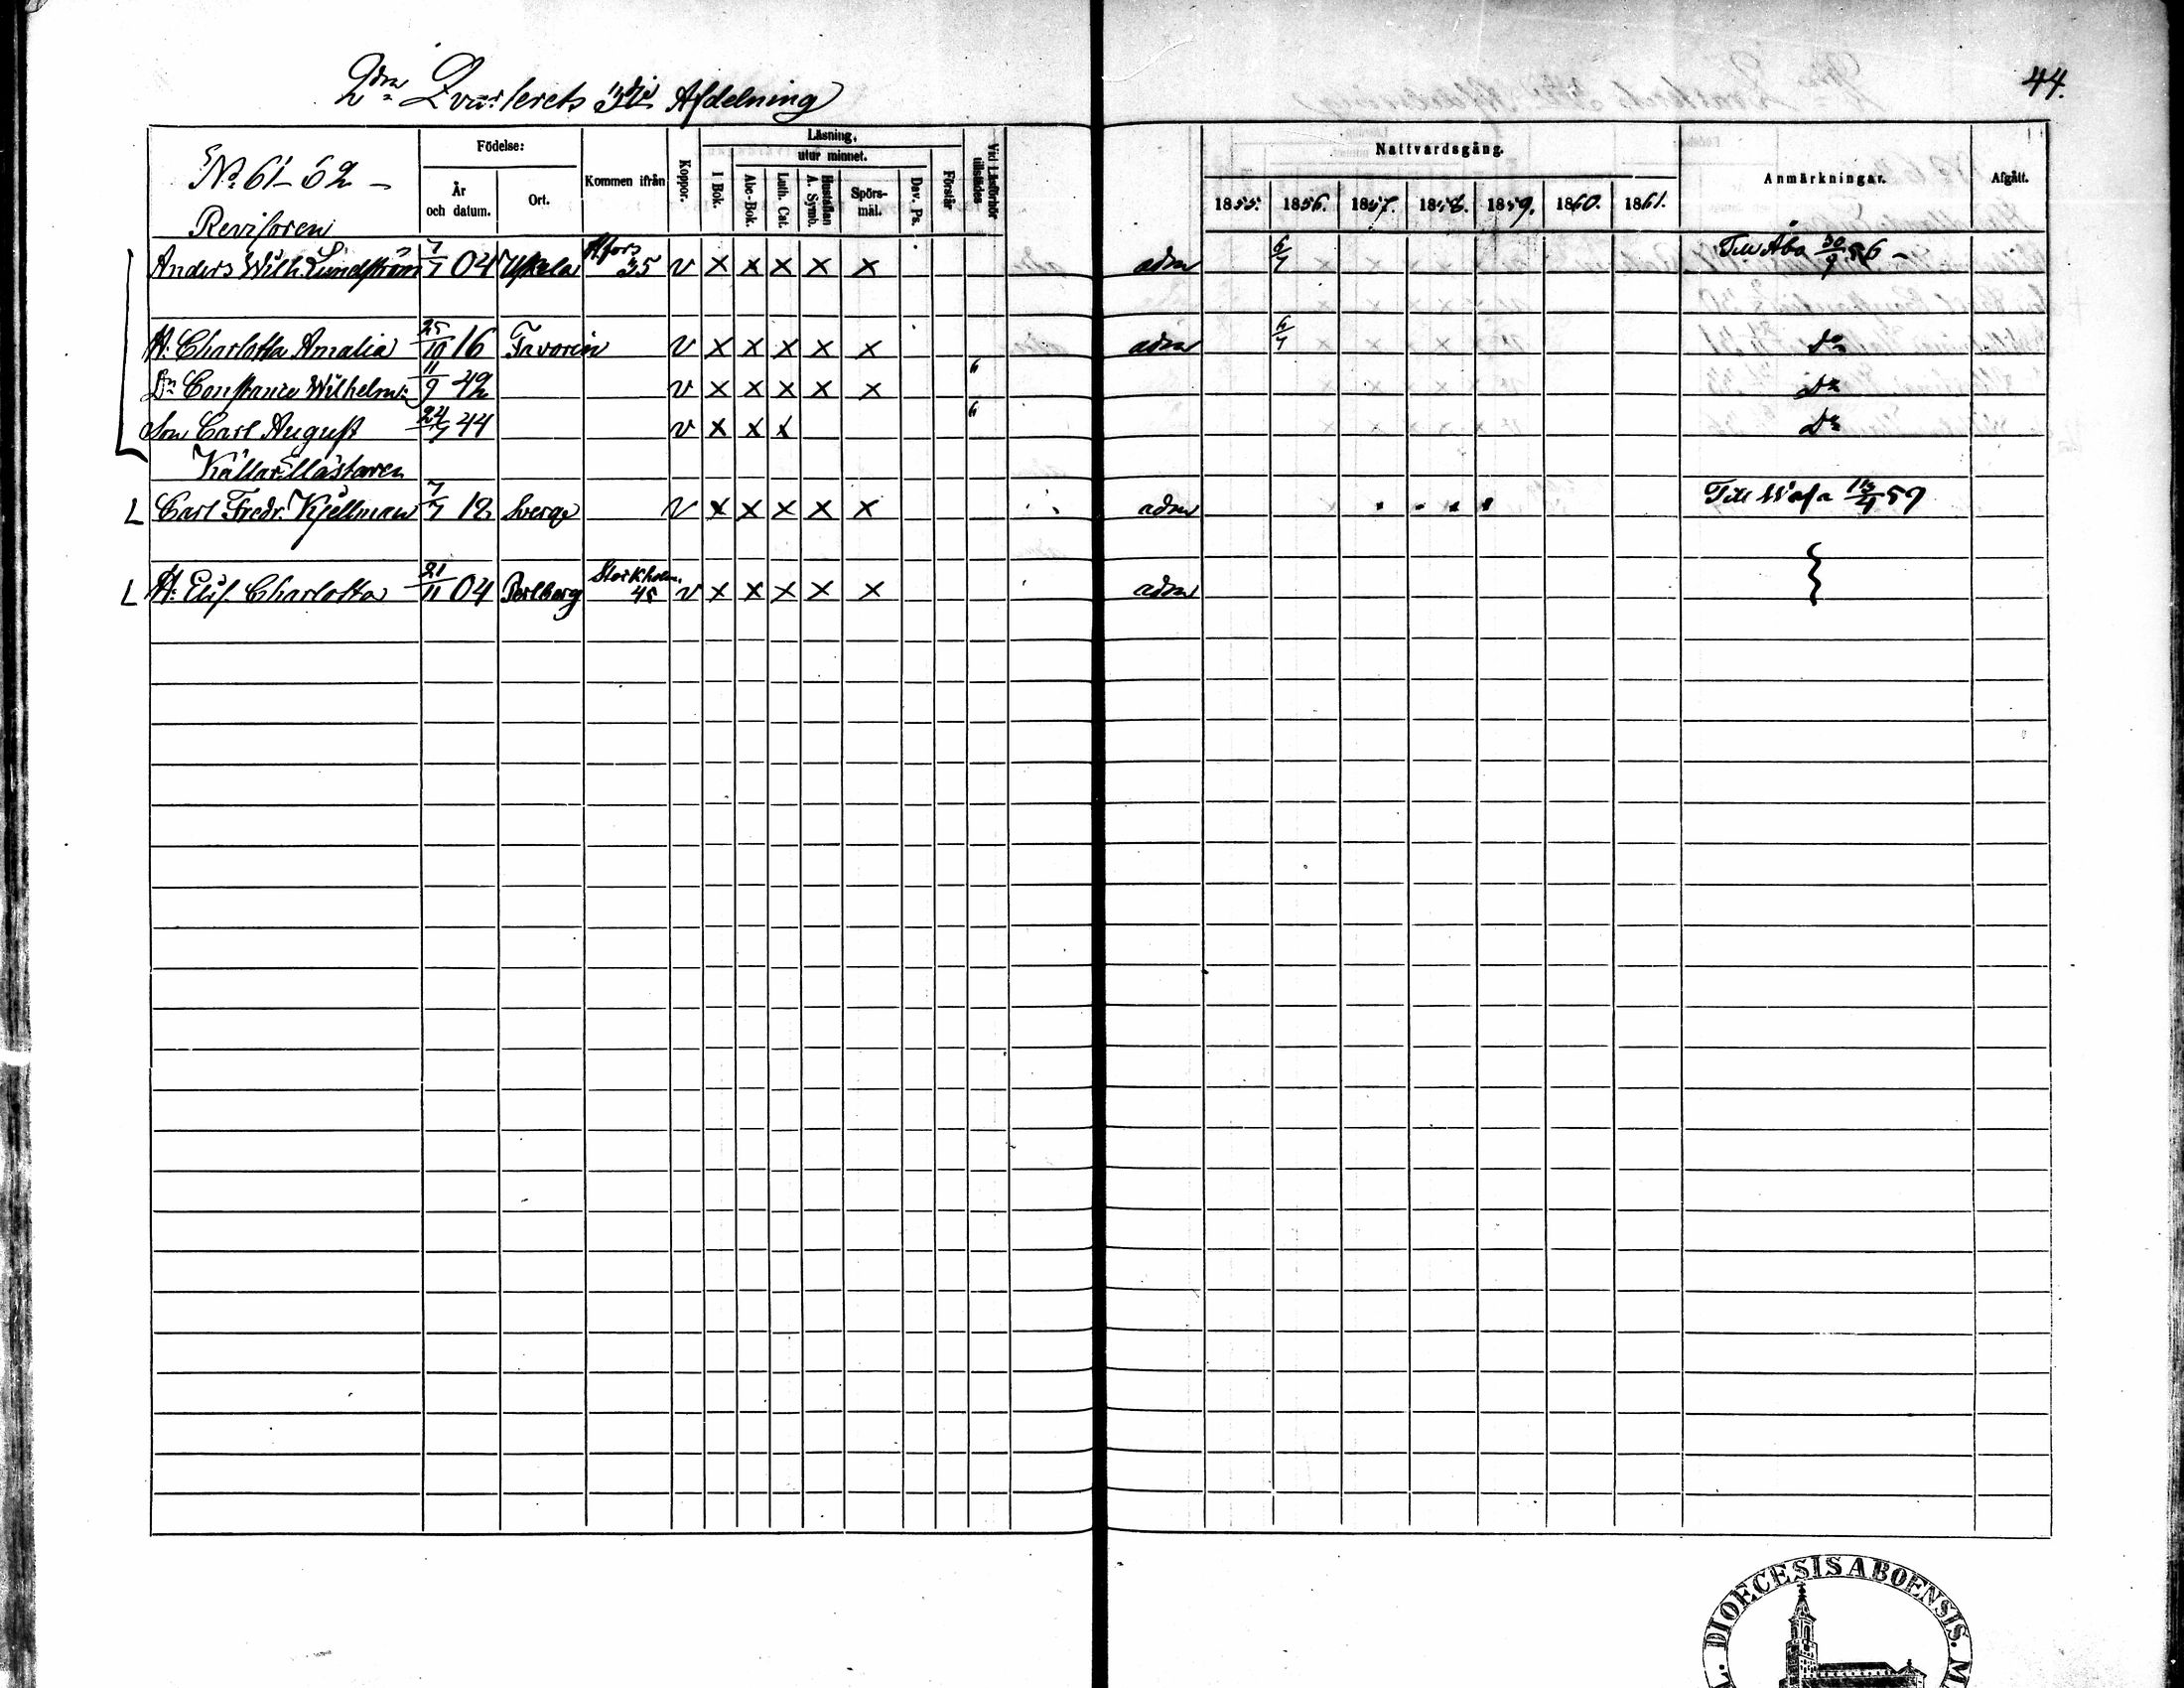 2dra Qvarterets 3dje Afdelning
44.
No 61-62 -
Födelse:
År och datum.
Ort.
Kommen ifrån
Koppor.
Läsning,
utur minnet.
I Bok.
Abc-Bok.
Luth. Cat.
Hustaflan A. Symb.
Spörs-mål.
Dav. Ps.
Förstår
Vid Läsförhör tillstädes
Nattvardsgång.
1855. 1856. 1857. 1858. 1859. 1860. 1861.
Anmärkningar.
Afgått.
Revisoren
Anders Wilh. Lundström 7/7 04 Uskela Hfors 35 v x x x x x adm 6/7 Till Åbo 30/9 56 -
H: Charlotta Amalia 25/10 16 v x x x x x adm 6/7 Do
Dr Constance Wilhelm: 11/9 42 v x x x x x 6 Do
Son Carl August 24/7 44 v x x x 6 Do
Källarmästaren
L Carl Fredr. Kjellman 7/7 12 Sverge v x x x x x adm Till Wasa 57
L H: Elis. Charlotta 21/11 04 Perlberg Stockholm. 45 v x x x x x adm
DIOECESIS ABOENSIS. M